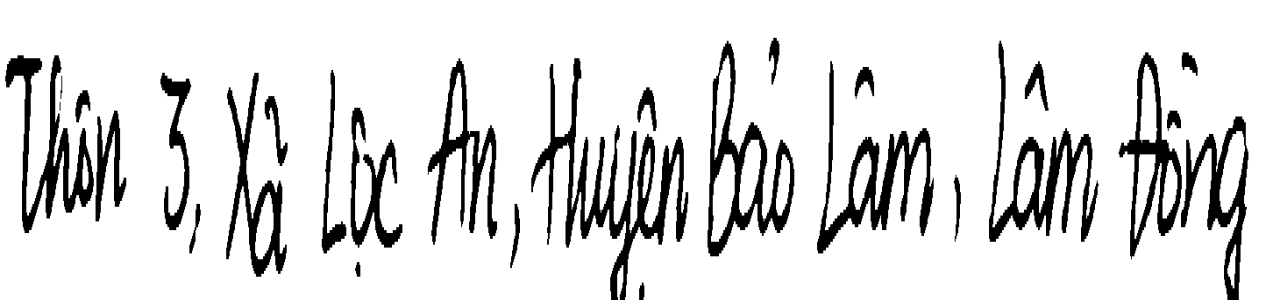 Thôn 3, Xã Lộc An, Huyện Bảo Lâm, Lâm Đồng